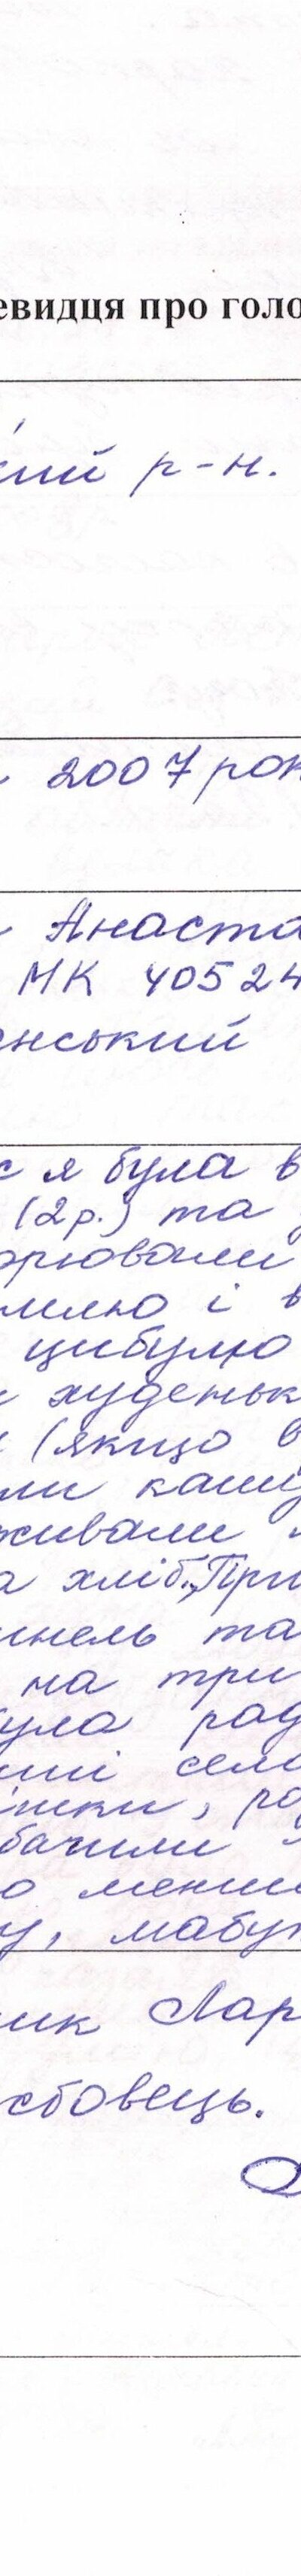 евидця про голо
кий р-н.
2007 рок
Анаста
МК 40524
енський
с я була в
(2р.) та
орювали
млю і в
цибулю
худеньк
(якщо в
ли кашу
живали
а хліб. „При
инель та
на три
ула рад
ший село
ішки, ро
бачили
о менше
у, мабут
ик Лар
сбовець.